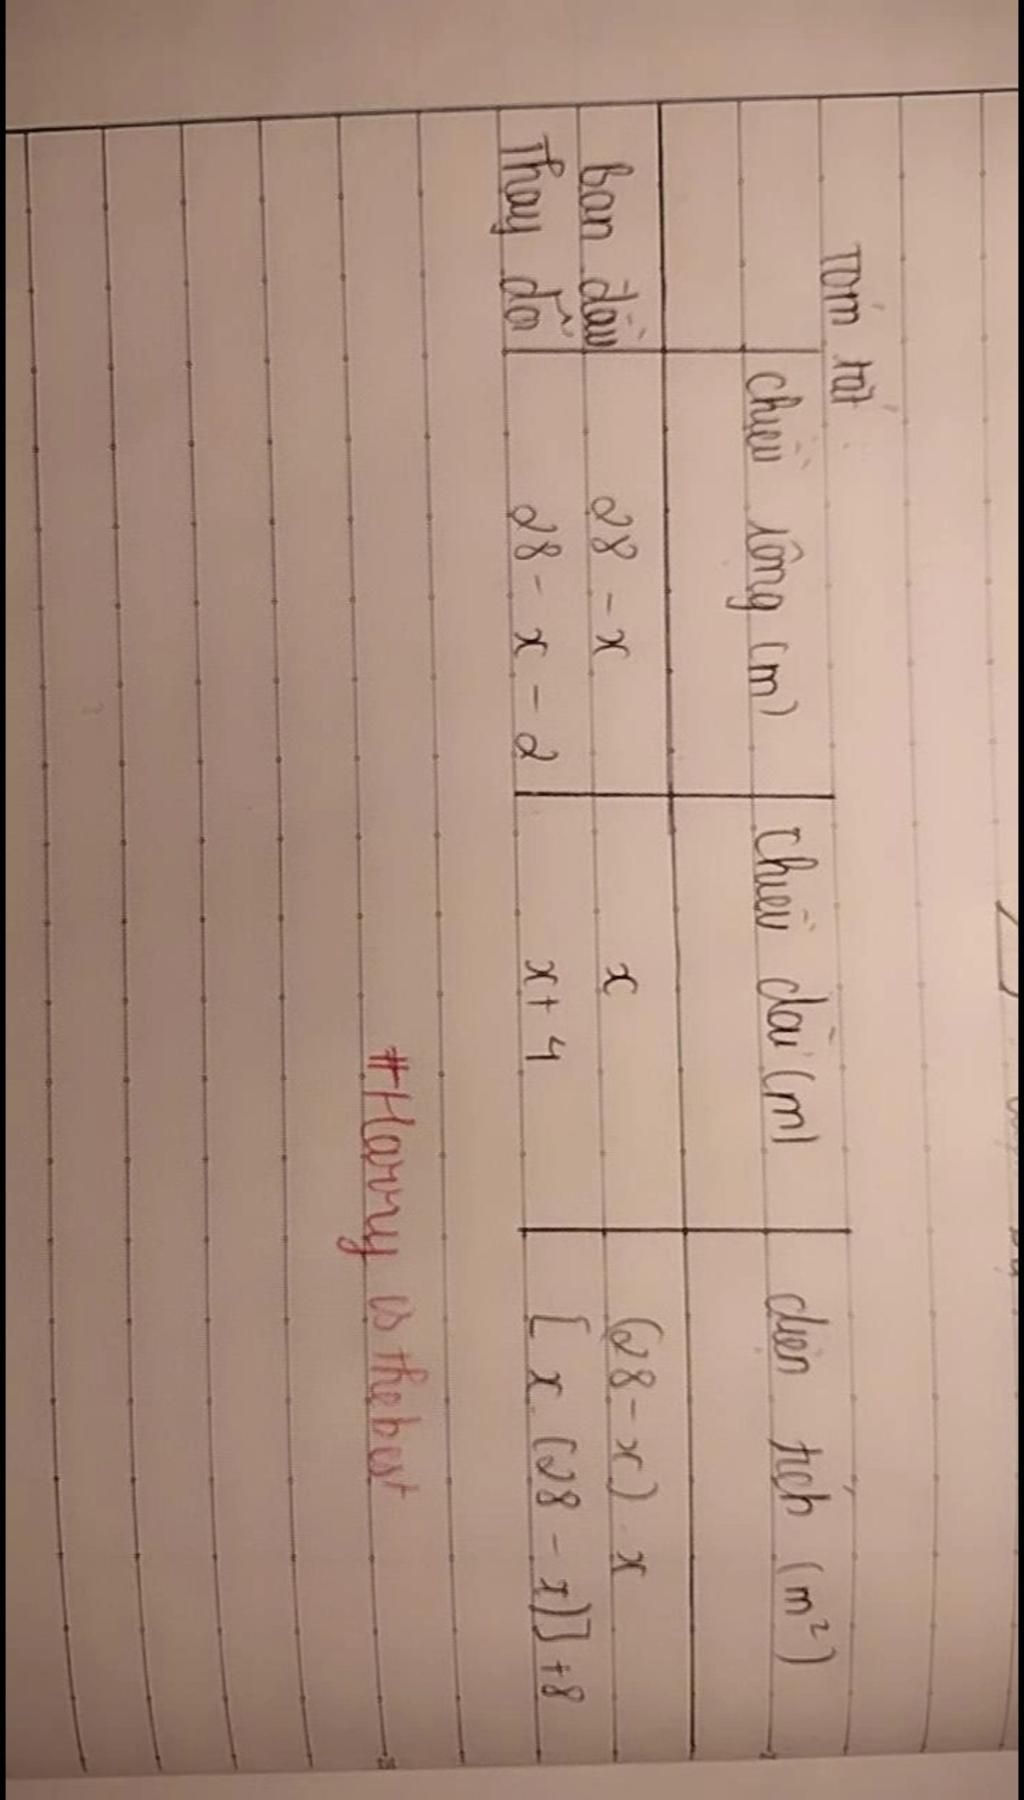 Tóm tắt:
chiều rộng (m) chiều dài (m) diện tích (m²)
ban đầu 28 - x x (28 - x) . x
Thay đổi 28 - x - 2 x + 4 [x . (28 - x)] + 8
#Harry is the best